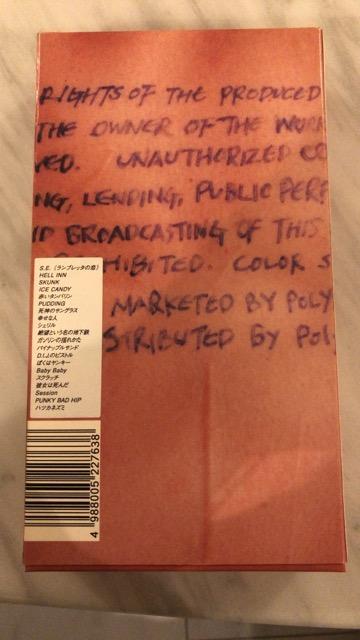 RIGHTS OF THE PRODUCED
THE OWNER OF THE WORK
VED. UNAUTHORIZED CO
NG, LENDING, PUBLIC PERF
ID BROADCASTING OF THIS
HIBITED. COLOR S
MARKETED BY POLY
STRIBUTED BY POL
S.E. (ランブレッタの恋)
HELL INN
SKUNK
ICE CANDY
赤いタンバリン
PUDDING
死神のサングラス
幸せな人
シェリル
絶望という名の地下鉄
ガソリンの揺れかた
パイナップルサンド
D.I.Jのピストル
ぼくはヤンキー
Baby Baby
スクラッチ
彼女は死んだ
Session
PUNKY BAD HIP
ハツカネズミ
4 988005 227638